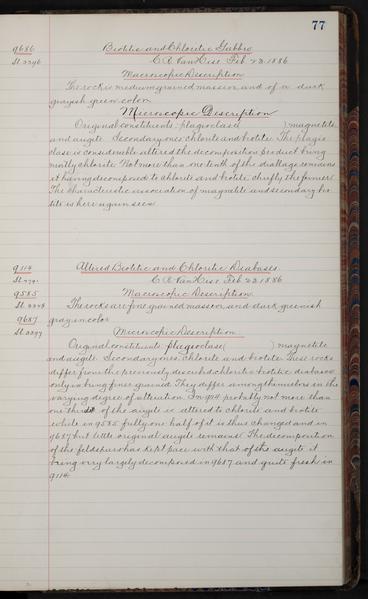 77
9686 Biotitic and Chloritic Gabbro
St. 2296 C. R. Van Hise Feb 23, 1886
Macroscopic Description
The rock is medium grained massive and of a dark
grayish green color.
Microscopic Description
Original constituents: plagioclase( ) magnetite,
and augite. Secondary ones: chlorite and biotite. The plagio
clase is considerable altered the decomposition product being
mostly chlorite. Not more than one tenth of the diallage remains
it having decomposed to chlorite and biotite, chiefly the former.
The characteristic association of magnetite and secondary bio
tite is here again seen.
9114 Altered Biotitic and Chloritic Diabases.
C. R. Van Hise Feb 23, 1886
9585 Macroscopic Description
The rocks are fine grained massive and dark greenish
9687 gray in color
St. 2297 Microscopic Description.
Original constituents: plagioclase( ) magnetite
and augite. Secondary ones: chlorite and biotite. These rocks
differ from the previously described chloritic biotitic diabases
only in being finer grained. They differ among themselves in the
varying degree of alteration. In 9114 probably not more than
one third of the augite is altered to chlorite and biotite
while in 9585 fully one half of it is thus changed and in
9687 but little original augite remains. The decomposition
of the feldspar has kept pace with that of the augite it
being very largely decomposed in 9687 and quite fresh in
9114.